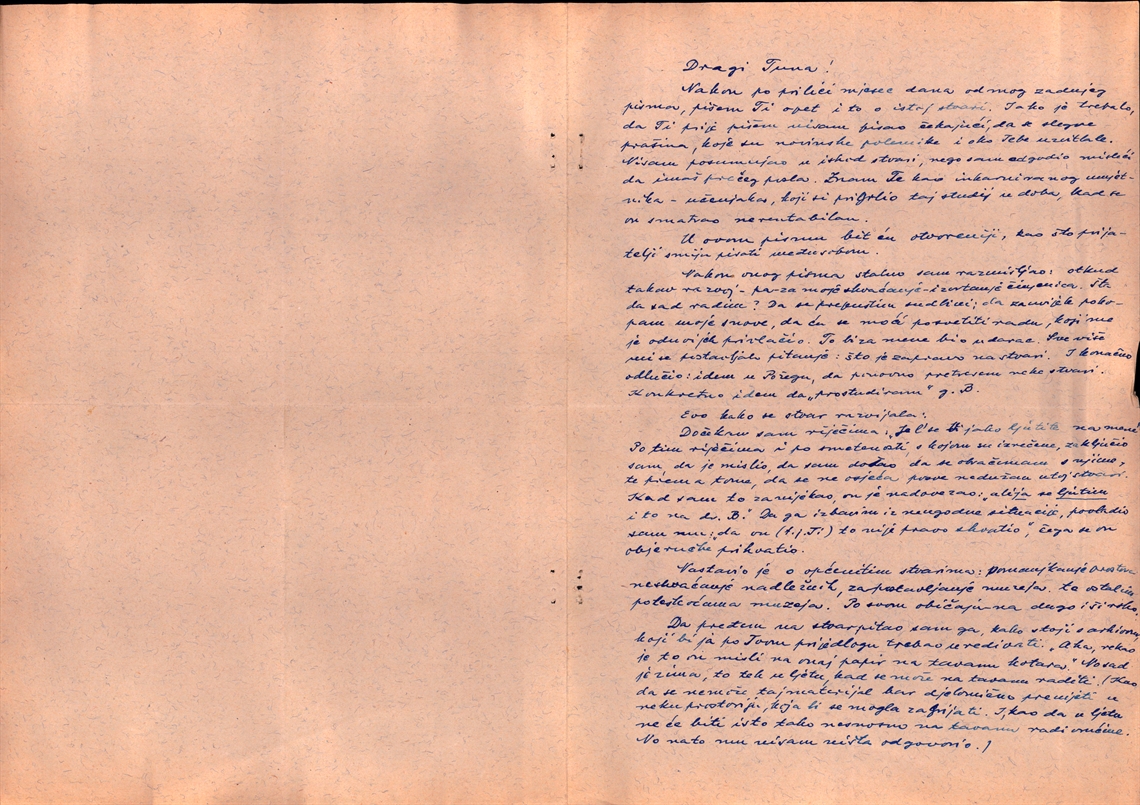 Dragi Tuna!
Nakon po prilici mjesec dana od mog zadnjeg
pisma, pišem Ti opet i to o istoj stvari. Iako je trebalo,
da Ti prije pišem nisam pisao čekajući, da se slegne
prašina, koje su novinske polemike i oko Tebe uzvitlale.
Nisam posumnjao u ishod stvari, nego sam odgodio misleći
da imaš prečeg posla. Znam Te kao inkarniranog umjet-
nika - učenjaka, koji si prigrlio taj studij u doba, kad se
on smatrao nerentabilan.
U ovom pismu bit ću otvoreniji, kao što prija-
telji smiju pisati među sobom.
Nakon onog pisma stalno sam razmišljao: otkud
takav razvoj - pa-za moje shvaćanje-izvrtanje činjenica. Šta
da sad radim? Da se prepustim sudbini; da zauvijek poko-
pam moje snove, da ću se moći posvetiti radu, koji me
je oduvijek privlačio. To bi za mene bio udarac. Sve više
mi se postavljalo pitanje: što je zapravo na stvari. I konačno
odlučio: idem u Požegu, da ponovno pretresem neke stvari.
Konkretno idem da „prostudiram" g. B.
Evo kako se stvar razvijala:
Dočekan sam riječima: „Je l' se Vi jako ljutite na mene
Po tim riječima i po smetenosti s kojom su izrečene, zaključio
sam, da je mislio, da sam došao da se obračunam s njime,
te prema tome, da se ne osjeća posve nedužan u toj stvari.
Kad sam to zanijekao, on je nadovezao: „ali ja se ljutim
i to na dr. B." Da ga izbavim iz neugodne situacije, povladio
sam mu: „da on (t.j. Ti) to nije pravo shvatio", čega se on
objeručke prihvatio.
Nastavio je o općenitim stvarima: pomanjkanje prostora
neshvaćanje nadležnih, zapostavljanje muzeja te ostalim
poteškoćama muzeja. Po svom običaju-na dugo i široko.
Da pređem na stvar pitao sam ga, kako stoji s arhivom,
koji bi ja po Tvom prijedlogu trebao uređivati. „Aha, rekao
je to on misli na onaj papir na tavanu kotara." No sad
je zima, to tek u ljetu, kad se može na tavanu raditi. (Kao
da se nemože taj materijal bar djelomično prenijeti u
neku prostoriju, koja bi se mogla zagrijati. I, kao da u ljetu
ne će biti isto tako nesnosno na tavanu radi vrućine.
No nato mu nisam ništa odgovorio.)